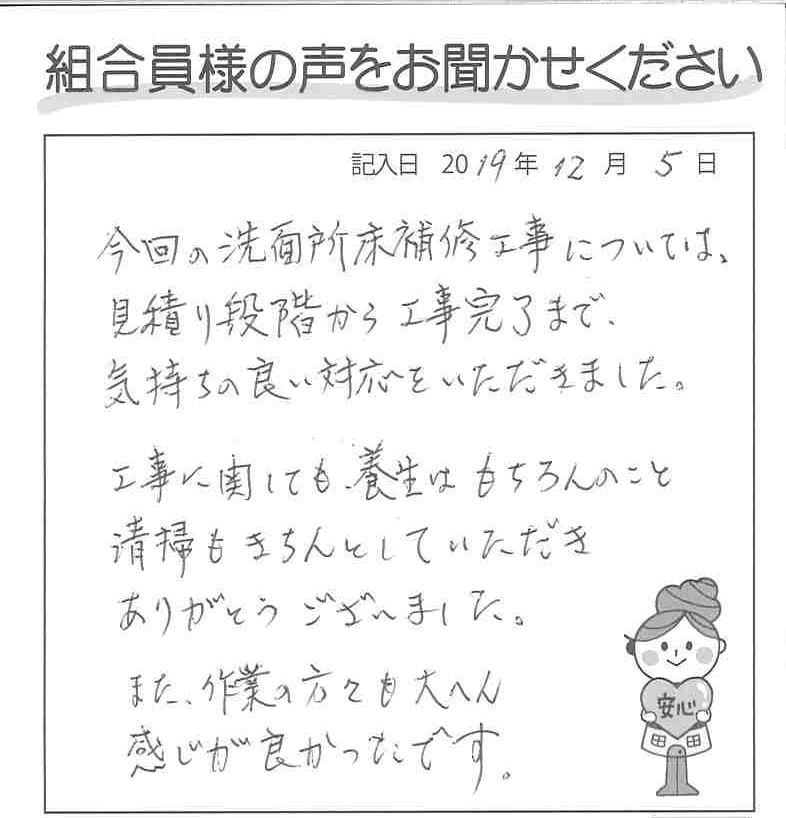 組合員様の声をお聞かせください
記入日 2019年 12月 5日
今回の洗面所床補修工事については、
見積り段階から工事完了まで、
気持ちの良い対応をいただきました。
工事に関しても、養生はもちろんのこと
清掃もきちんとしていただき
ありがとうございました。
また、作業の方々も大へん
感じが良かったです。
安心